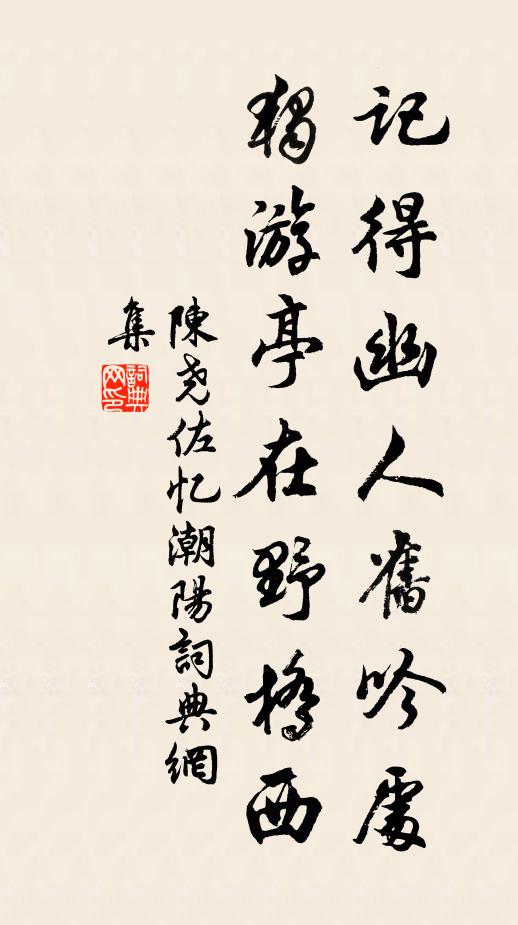 記得幽人舊吟處
獨游亭在野橋西
陳尧佐忆潮陽詞典網
集
詞典
网印